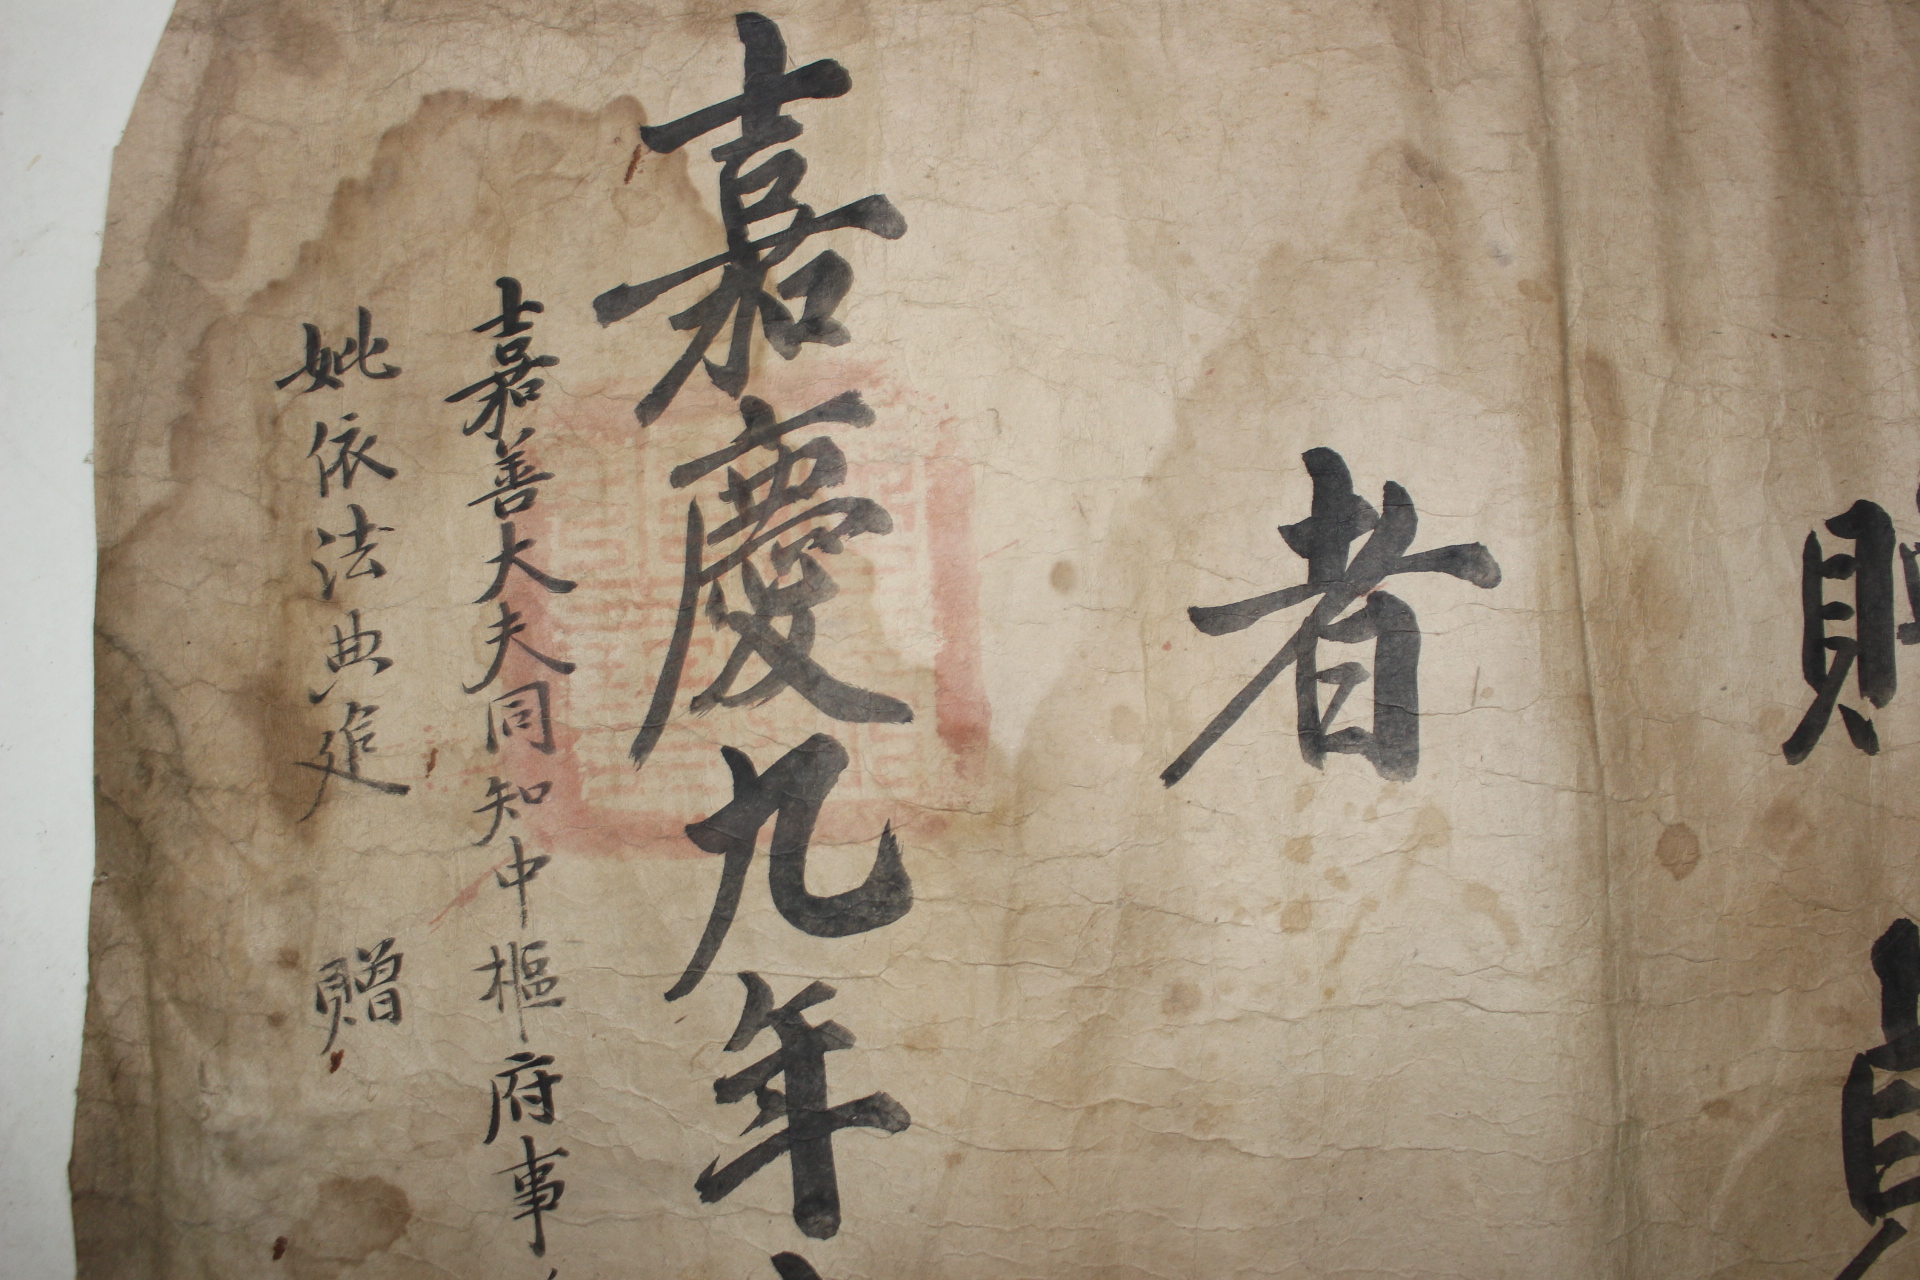 贈貞
者
嘉慶九年
嘉善大夫同知中樞府事
妣依法典追 贈